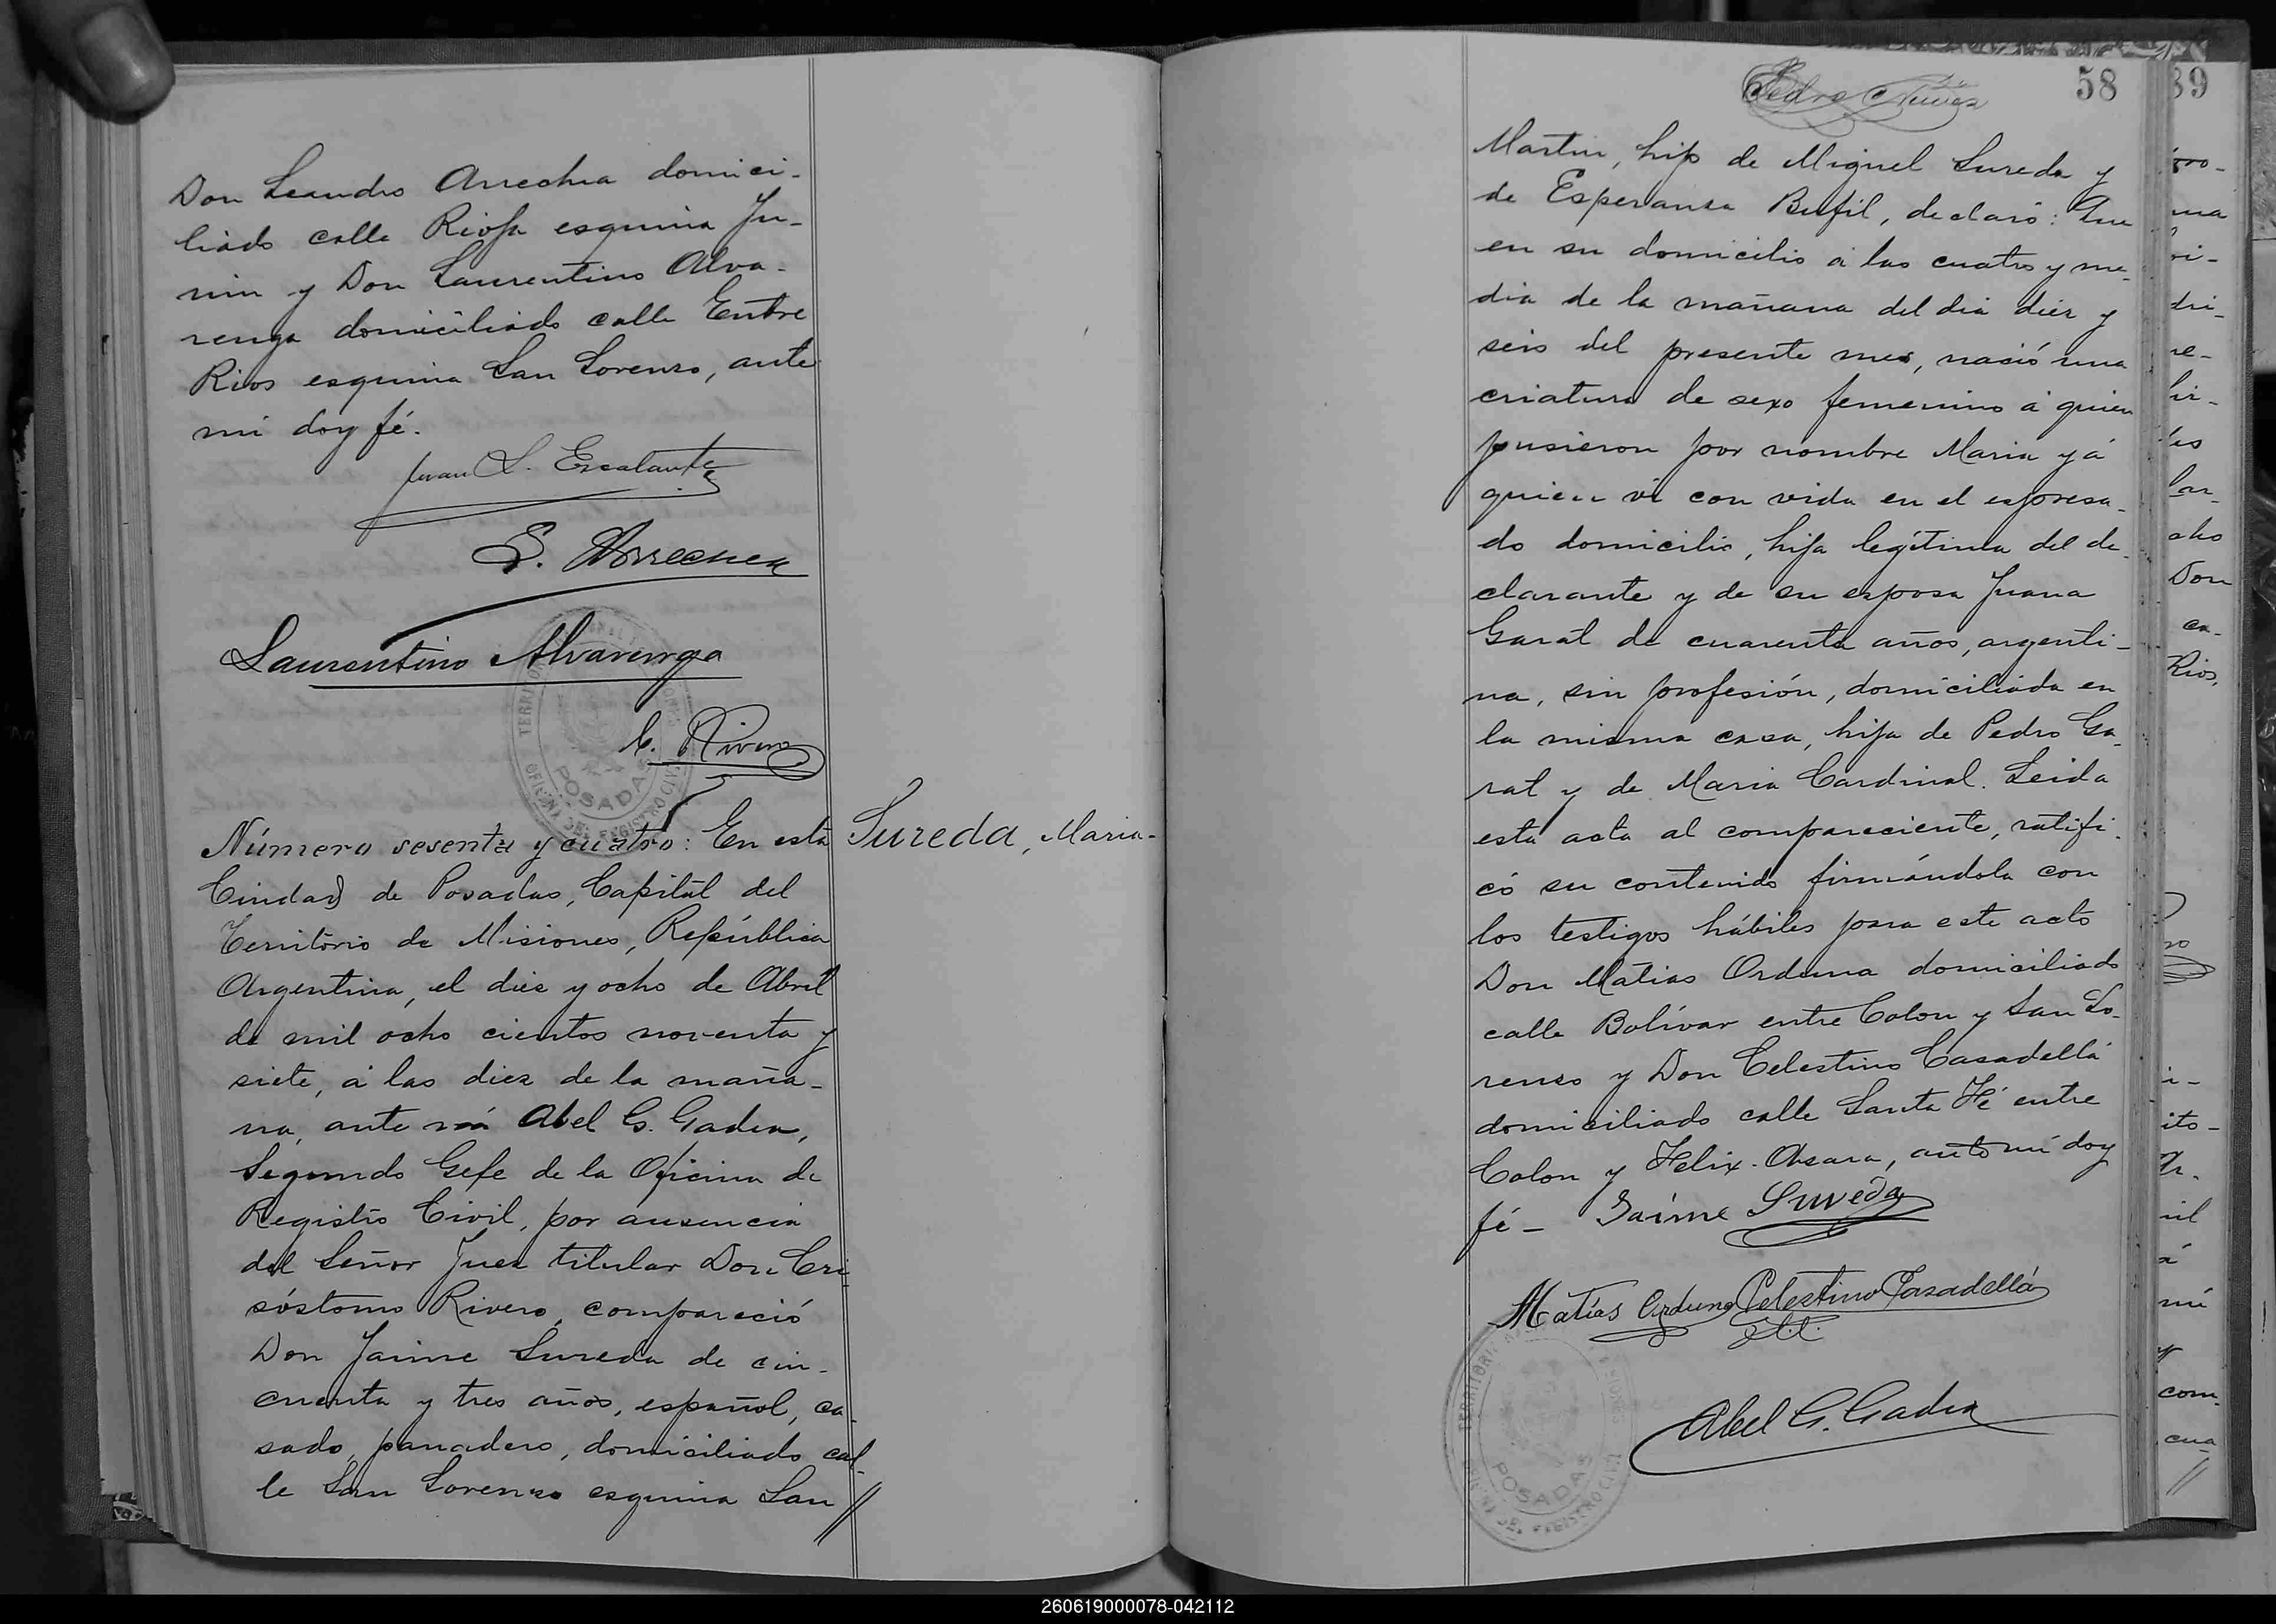 Don Leandro Arrechea domici-
liado calle Rioja esquina Ju-
nin y Don Laurentino Alva-
renga domiciliado calle Entre
Rios esquina San Lorenzo, ante
mi doy fé.
Juan L. Escalante
L. Arrechea
Laurentino Alvarenga
C. Rivero
POSADAS
OFICINA DEL REGISTRO CIVIL
Número sesenta y cuatro: En esta
Sureda, Maria-
Ciudad de Posadas, Capital del
Territorio de Misiones, República
Argentina, el diez y ocho de Abril
de mil ocho cientos noventa y
siete, á las diez de la maña-
na, ante mi Abel G. Gadea,
Segundo Gefe de la Oficina de
Registro Civil, por ausencia
del Señor Juez titular Don Cri-
sóstomo Rivero, compareció
Don Jaime Sureda de cin-
cuenta y tres años, español, ca-
sado, panadero, domiciliado cal-
le San Lorenzo esquina San //
58
Martin, hijo de Miguel Sureda y
de Esperanza Bufil, declaró: Que
en su domicilio á las cuatro y me-
dia de la mañana del dia diez y
seis del presente mes, nació una
criatura de sexo femenino á quien
pusieron por nombre Maria y á
quien vi con vida en el espresa-
do domicilio, hija legítima del de-
clarante y de su esposa Juana
Garat de cuarenta años, argenti-
na, sin profesión, domiciliada en
la misma casa, hija de Pedro Ga-
rat y de Maria Cardinal. Leida
esta acta al compareciente, ratifi-
có su contenido firmándola con
los testigos hábiles para este acto
Don Matias Orduna domiciliado
calle Bolívar entre Colon y San Lo-
renzo y Don Celestino Casadellá
domiciliado calle Santa Fé entre
Colon y Felix Azara, ante mi doy
fé- Jaime Sureda
Matías Orduna Celestino Casadellá
Abel G. Gadea
POSADAS
39
Don
Rios.
com-
cua
//
260619000078-042112